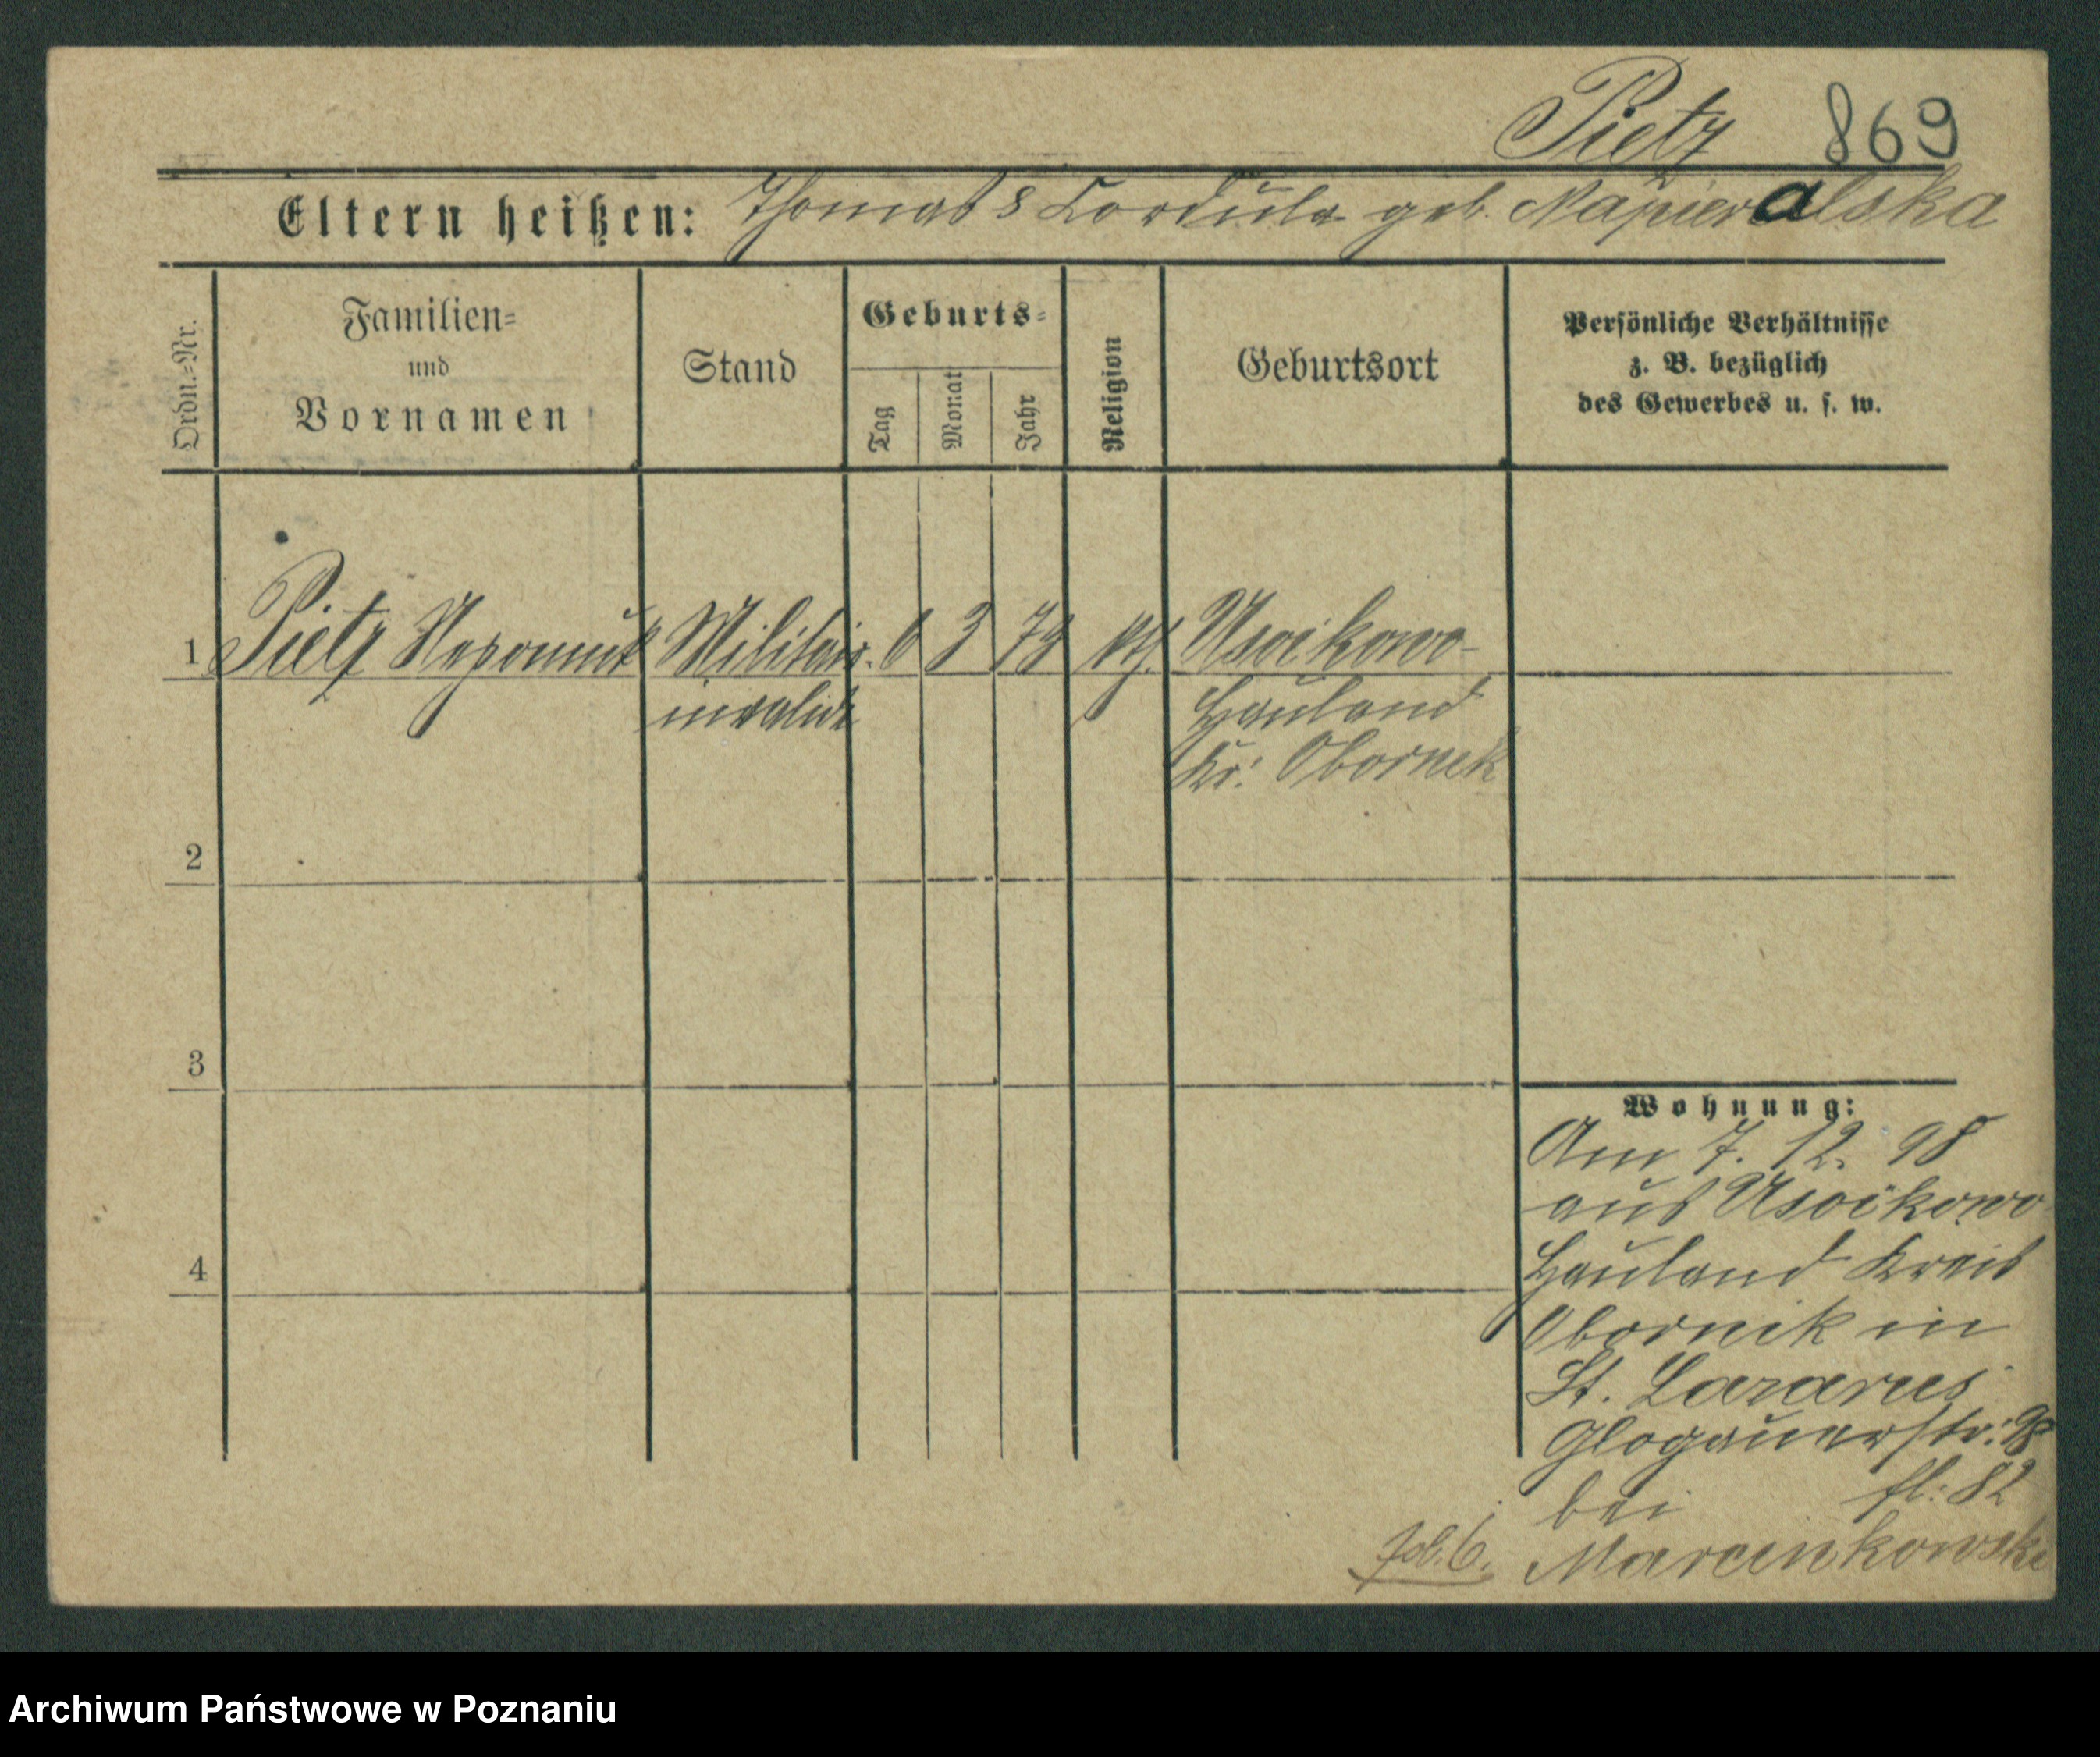 Pietz 869
Eltern heißen: Thomas & Cordula geb. Napieralska
Ordn.=Nr.
Familien=
und
Vornamen
Stand
Geburts=
Tag
Monat
Jahr
Religion
Geburtsort
Persönliche Verhältnisse
z. B. bezüglich
des Gewerbes u. s. w.
1 Pietz Nepomuk Militair- 6 3 79 kth. Uscikowo-
invalide Hauland
Kr: Obornik
2
3
4
Wohnung:
Am 7. 12. 98
aus Uscikowo
Hauland Kreis
Obornik in
St. Lazarus
Glogauerstr: 98
bei fl: 82
Marcinkowski
Archiwum Państwowe w Poznaniu